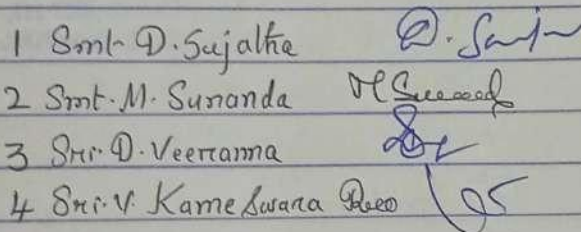 1 Smt D. Sujatha D. Suj
2 Smt. M. Sunanda M Sunand
3 Sri. D. Veeranna
4 Sri. V. Kameswara Rao